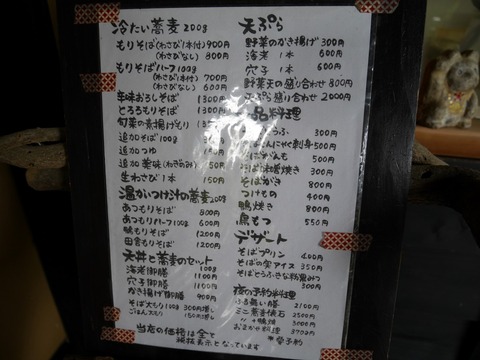 冷たい蕎麦 200g
もりそば(わさび1本付) 900円
(わさびなし) 800円
もりそばハーフ 100g
(わさび1本付) 700円
(わさびなし) 600円
辛味おろしそば 1300円
とろろもりそば 1300円
旬菜の素揚げもり
追加そば 100g 300円
追加つゆ
追加薬味(わさびのみ)
生わさび1本
温かいつけ汁の蕎麦 200g
あつもりそば 800円
あつもりハーフ 100g 600円
鴨もりそば 1200円
田舎もりそば 1200円
天丼と蕎麦のセット
海老御膳 100g 1100円
穴子御膳 1100円
かき揚げ御膳 900円
そば大もり 100g 300円増し
ごはん大もり
当店の価格は全て
税抜表示となっています
天ぷら
野菜のかき揚げ 300円
海老 1本 600円
穴子 1本 600円
野菜天の盛り合わせ 800円
天ぷら盛り合わせ 2000円
一品料理
300円
500円
500円
300円
そばがき 800円
つけもの 400円
鴨焼き 800円
鳥もつ 550円
デザート
そばプリン 400円
そばの実アイス 350円
夜の予約料理
2100円
ミニ蕎麦懐石 2500円
〃 鴨鍋 3000円
おまかせ料理 3700円
※要予約